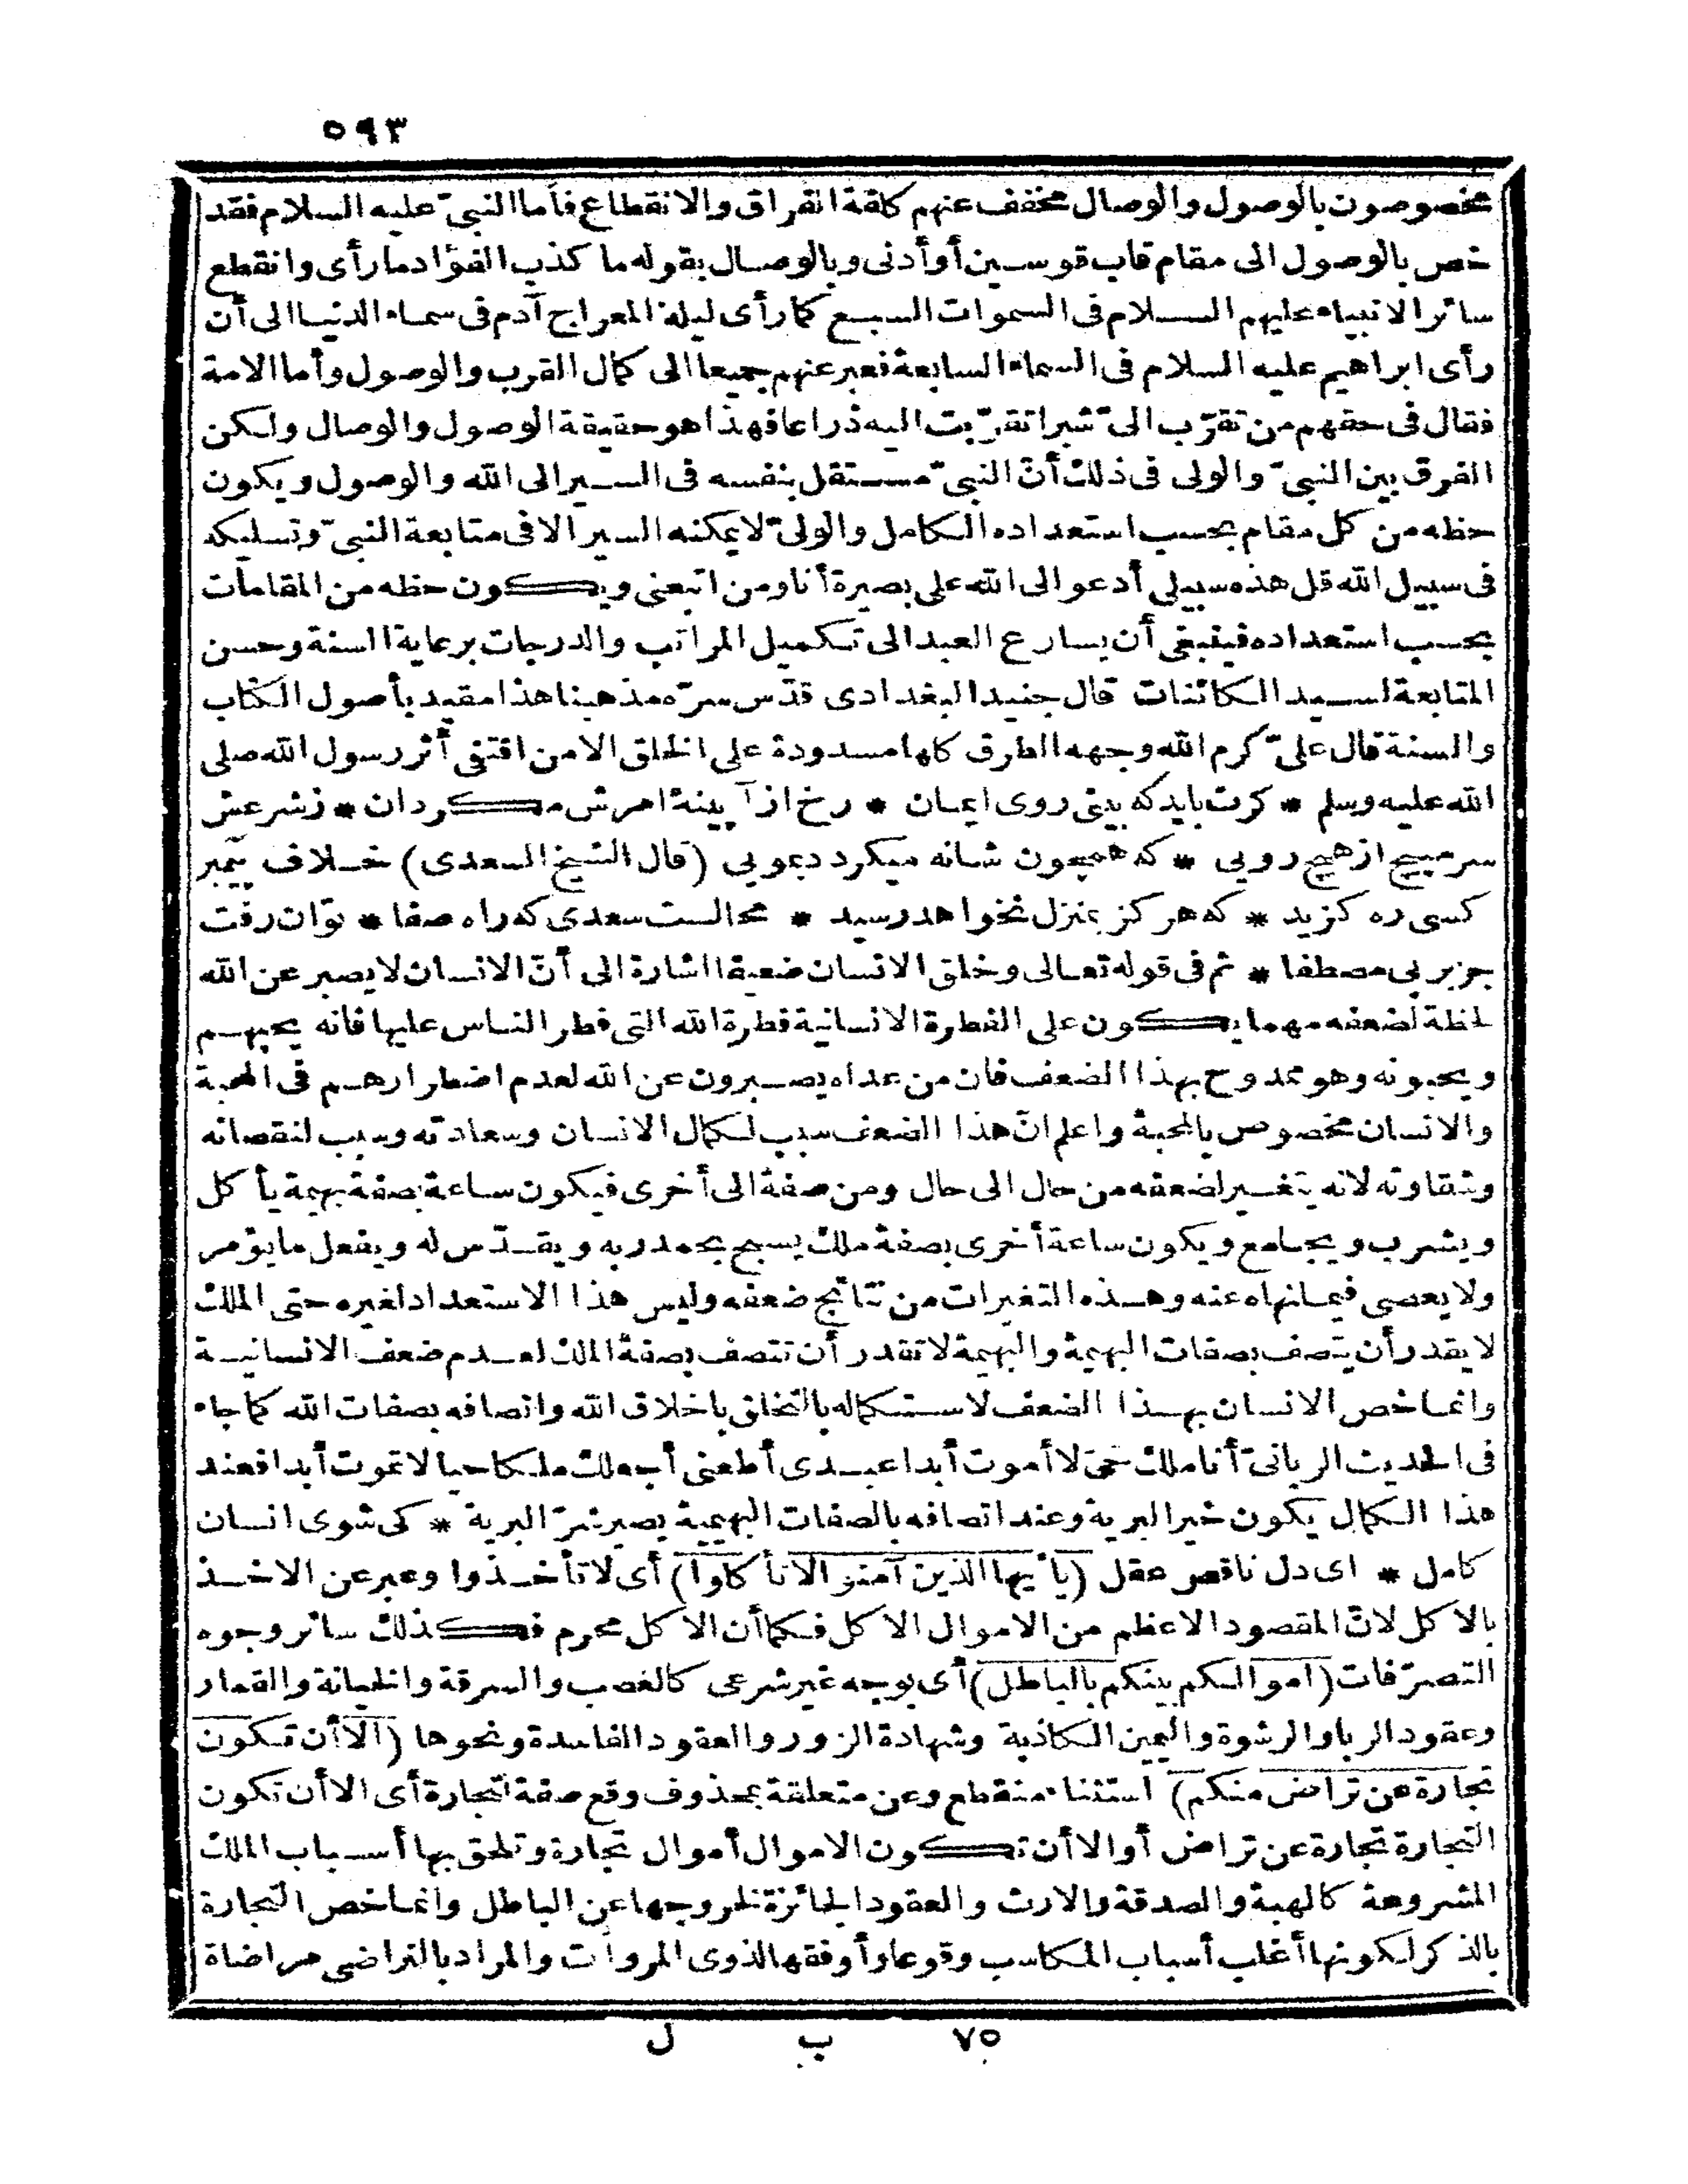 ٥٩٣
مخصوصون بالوصول والوصال مخفف عنهم كلفة الفراق والانقطاع فأما النبىّ عليه السلام فقد
خص بالوصول الى مقام قاب قوسين أو أدنى وبالوصال بقوله ما كذب الفؤاد ما رأى وانقطع
سائر الانبياء عليهم السلام فى السموات السبع كما رأى ليلة المعراج آدم فى سماء الدنيا الى أن
رأى ابراهيم عليه السلام فى السماء السابعة فعبر عنهم جميعا الى كمال القرب والوصول وأما الامة
فقال فى حقهم من تقرّب الىّ شبرا تقرّبت اليه ذراعا فهذا هو حقيقة الوصول والوصال ولكن
الفرق بين النبىّ والولى فى ذلك أنّ النبىّ مستقل بنفسه فى السير الى الله والوصول ويكون
حظه من كل مقام بحسب استعداده الكامل والولىّ لا يمكنه السير الا فى متابعة النبىّ وتسليكه
فى سبيل الله قل هذه سبيلى أدعو الى الله على بصيرة أنا ومن اتبعنى ويكون حظه من المقامات
بحسب استعداده فينبغى أن يسارع العبد الى تكميل المراتب والدرجات برعاية السنة وحسن
المتابعة لسيد الكائنات قال جنيد البغدادى قدّس سرّه مذهبنا هذا مقيد بأصول الكتاب
والسنة قال علىّ كرم الله وجهه الطرق كلها مسدودة على الخلق الا من اقتفى أثر رسول الله صلى
الله عليه وسلم * كرت بايد كه بينى روى ايمان * رخ از آيينهٔ امرش مكردان * زشرعش
سر مپيچ از هيچ رويى * كه همچون شانه ميكردد بمويى (قال الشيخ السعدى) خلاف پيمبر
كسى ره كزيد * كه هركز بمنزل نخواهد رسيد * محالست سعدى كه راه صفا * توان رفت
جز بر پى مصطفا * ثم فى قوله تعالى وخلق الانسان ضعيفا اشارة الى أنّ الانسان لا يصبر عن الله
لحظة لضعفه مهما يكون على الفطرة الانسانية فطرة الله التى فطر الناس عليها فانه يحبهم
ويحبونه وهو ممدوح بهذا الضعف فان من عداه يصبرون عن الله لعدم اضطرارهم فى المحبة
والانسان مخصوص بالمحبة واعلم انّ هذا الضعف سبب لكمال الانسان وسعادته وسبب لنقصانه
وشقاوته لانه يتغير لضعفه من حال الى حال ومن صفة الى أخرى فيكون ساعة بصفة بهيمة يأكل
ويشرب ويجامع ويكون ساعة أخرى بصفة ملك يسبح بحمد ربه ويقدّس له ويفعل ما يؤمر
ولا يعصى فيما نهاه عنه وهذه التغيرات من نتائج ضعفه وليس هذا الاستعداد لغيره حتى الملك
لا يقدر أن يتصف بصفات البهيمة والبهيمة لا تقدر أن تتصف بصفة الملك لعدم ضعف الانسانية
وانما خص الانسان بهذا الضعف لاستكماله بالتخلق باخلاق الله واتصافه بصفات الله كما جاء
فى الحديث الربانىّ أنا ملك حىّ لا أموت أبدا عبدى أطعنى أجعلك ملكا حيا لا تموت أبدا فعند
هذا الكمال يكون خير البرية وعند اتصافه بالصفات البهيمية يصير شرّ البرية * كى شوى انسان
كامل * اى دل ناقص عقل (يا أيها الذين آمنوا لا تأكلوا) أى لا تأخذوا وعبر عن الاخذ
بالاكل لانّ المقصود الاعظم من الاموال الاكل فكما أن الاكل محرم فكذلك سائر وجوه
التصرّفات (اموالكم بينكم بالباطل) أى بوجه غير شرعى كالغصب والسرقة والخيانة والقمار
وعقود الربا والرشوة واليمين الكاذبة وشهادة الزور والعقود الفاسدة ونحوها (الا أن تكون
تجارة عن تراض منكم) استثناء منقطع وعن متعلقة بمحذوف وقع صفة لتجارة أى الا أن تكون
التجارة تجارة عن تراض أو الا أن تكون الاموال أموال تجارة وتلحق بها أسباب الملك
المشروعة كالهبة والصدقة والارث والعقود الجائزة لخروجها عن الباطل وانما خص التجارة
بالذكر لكونها أغلب أسباب المكاسب وقوعا وأوفقها لذوى المروآت والمراد بالتراضى مراضاة
٧٥ ب ل